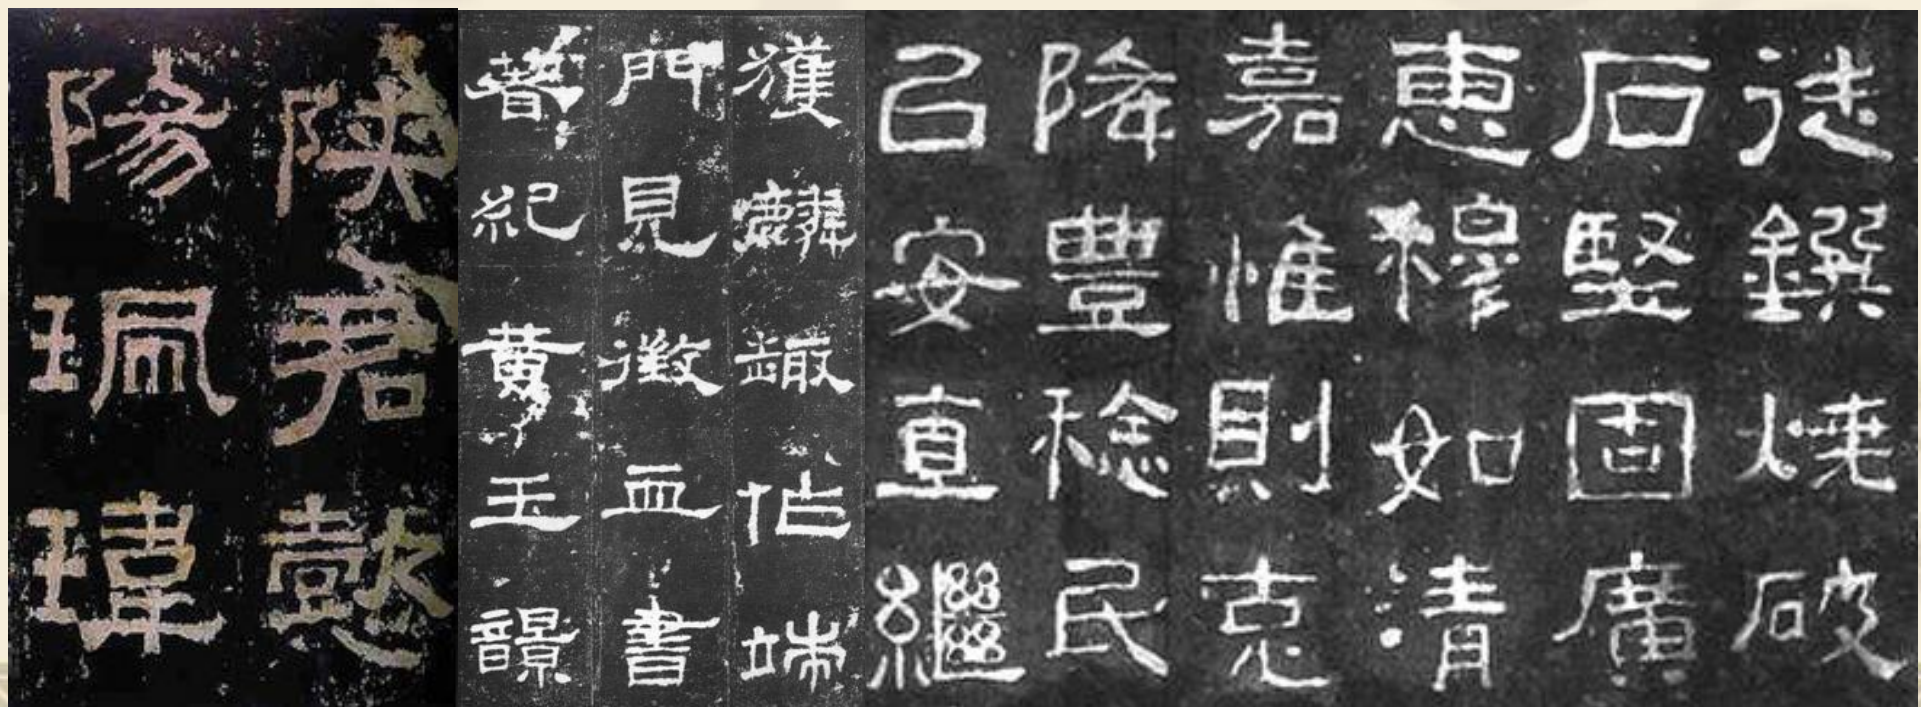 陕君懿
陽珮瑋
獲麟趣作端
門見徵血書
著紀黃玉韻
徒鐉燒破
石堅固廣
惠穆如清
嘉惟則克
降豐稔民
以安直繼